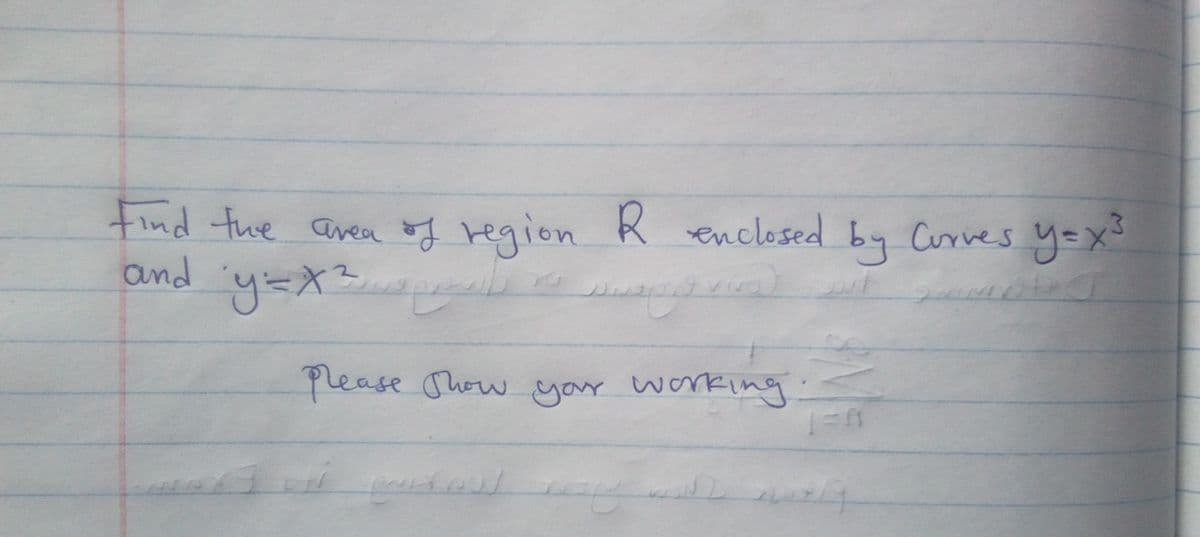 Find the area of region R enclosed by Curves y=x³
and y=x²
Please Show your working.